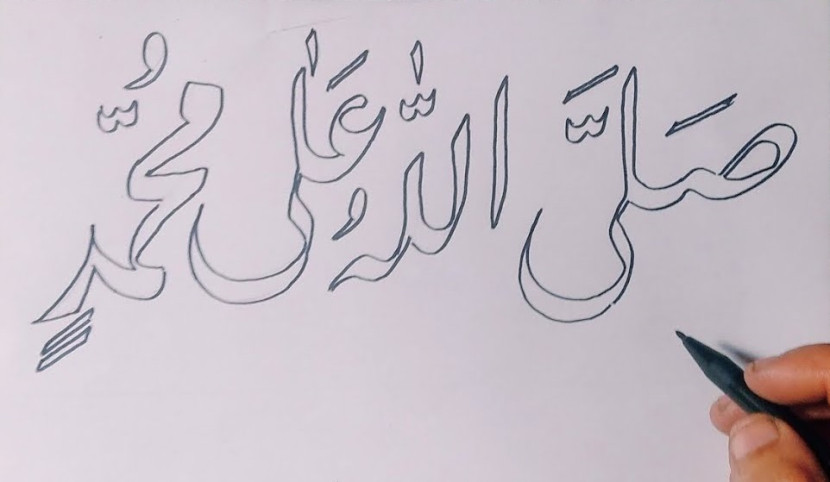 صَلَّى اللّٰهُ عَلٰى مُحَمَّدٍ